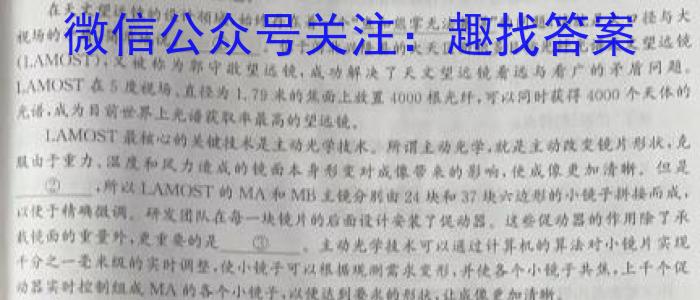 在天文望远镜的设计领域
微信公众号关注：趣找答案
径与大
视场的
望远镜
(LAMOST)，又被称为郭守敬望远镜，成功解决了天文望远镜看远与看广的矛盾问题。
LAMOST 在 5 度视场、直径为 1.79 米的焦面上放置 4000 根光纤，可以同时获得 4000 个天体的
光谱，成为目前世界上光谱获取率最高的望远镜。
LAMOST 最核心的关键技术是主动光学技术。所谓主动光学，就是主动改变镜片形状，克
服由于重力、温度和风力造成的镜面本身形变对成像带来的影响，使成像更加清晰。但是
②，所以 LAMOST 的 MA 和 MB 主镜分别由 24 块和 37 块六边形的小镜子拼接而成，
以便于精确微调。研发团队在每一块镜片的后面设计安装了促动器。这些促动器的作用除了承
载镜面的重量外，更重要的是③。主动光学技术可以通过计算机的算法对小镜片实现
千分之一毫米级的实时调整，使小镜子可以根据观测需求变形，并使各个小镜子共焦，上千个促
动器实时控制组成 MA 的各个小镜子，以便达到要求的形状，让成像更加清晰。